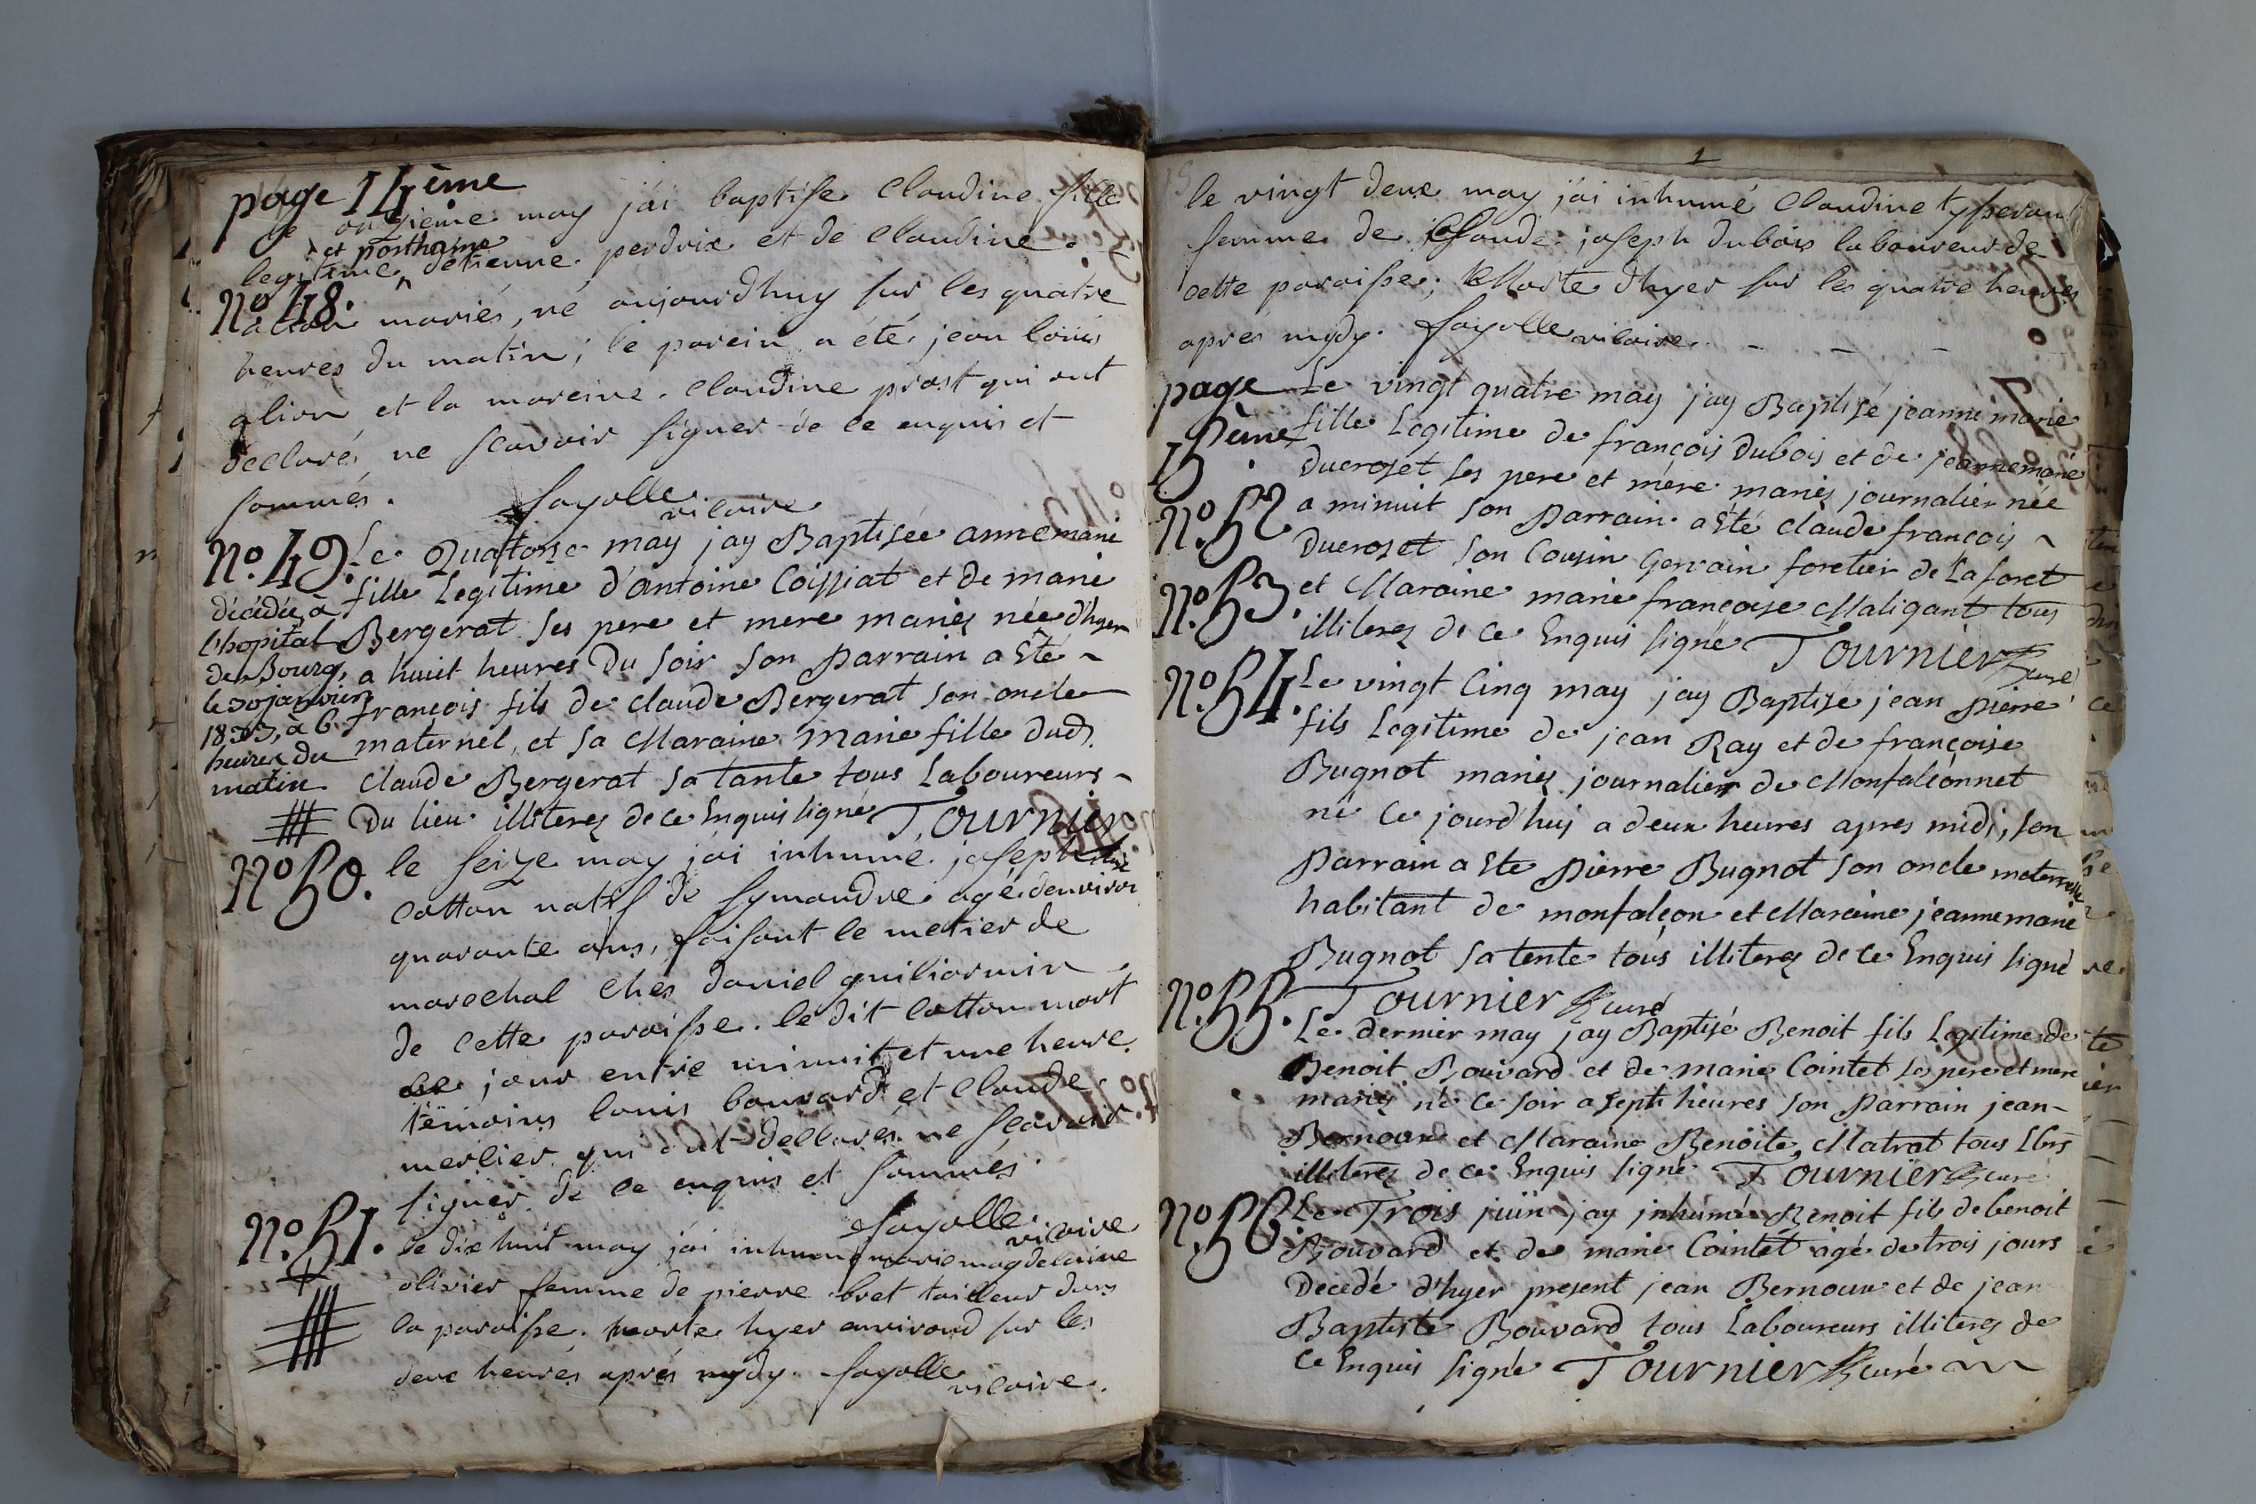 page 14ème
ce onzieme may j'ai baptisé Claudine fille
et posthume
legitime d'etienne perdrix et de Claudine
No. 48.
alion mariés, né aujourdhuy sur les quatre
heures du matin; le parein a été jean loüis
alion et la mareine Claudine prost qui ont
declaré ne scavoir signer de ce enquis et
sommés. fayolle vicaire
No. 49. Le Quatorze may jay Baptisée annemarie
fille Legitime d'antoine Coissiat et de marie
Bergerat ses pere et mere mariés née d'hyer
a huit heures Du soir son parrain a Eté
françois fils de claude Bergerat son oncle
maternel, et sa Maraine Marie fille dud.
claude Bergerat sa tante tous Laboureurs
Du lieu illiterez de ce Enquis signé Tournier
décédée à
l'hopital
de Bourg,
le 30 janvier
à 6
heures du
matin
No 50. le seize may j'ai inhumé joseph
Cotton natif de symandre agé denviron
quarante ans, faisant le metier de
marechal chés daniel guiliarmin
de cette paroisse. le dit Cotton mort
ce jour entre minuit et une heure.
temoins louis bouvard et Claude
merlier qui ont declarés ne scavoir
signer de ce enquis et sommés.
fayolle vicaire
No. 51. le dix huit may j'ai inhumé marie magdelaine
olivier femme de pierre bret tailleur dans
la paroisse. morte hyer environd sur les
deux heurés aprés mydy. fayolle vicaire.
1
le vingt deux may j'ai inhumé Claudine
femme de Claude joseph dubois laboureur de
cette paroisse; Morte d'hyer sur les quatre heures
aprés mydy. fayolle vicaire.
page 15ème
Le vingt quatre may jay Baptisé jeanne marie
fille Legitime de françois Dubois et de jeannemarie
Ducroset ses pere et mére mariés journalier née
No. 52 a minuit son parrain a été claude françois
Ducroset son Cousin Gervain foretier de La foret
No. 53. et Maraine marie françoise Maligant tous
illiterez de ce Enquis signé Tournier Curé
No. 54. Le vingt Cinq may jay Baptisé jean pierre
fils Legitime de jean Ray et de françoise
Bugnot mariés journalier de Monfalconnet
né Ce jourd'huy a deux heures apres midi, son
parrain a Ete pierre Bugnot son oncle maternelle
habitant de monfalcon et Maraine jeannemarie
Bugnot sa tente tous illiterez de ce Enquis signé
No. 55. Tournier curé
Le dernier may jay Baptisé Benoit fils Legitime de
Benoit Bouvard et de marie Cointet ses pere et mere
mariés né ce soir a sept heures son parrain jean
Bernoux et Maraine Benoite Matrat tous Lbrs
illiterez de ce Enquis signé Tournier curé
No. 56. Le Trois juin jay inhumé Benoit fils de benoit
Bouvard et de marie Cointet agé de trois jours
Decedé d'hyer present jean Bernoux et de jean
Baptiste Bouvard tous Laboureurs illiterez de
ce Enquis signé Tournier curé